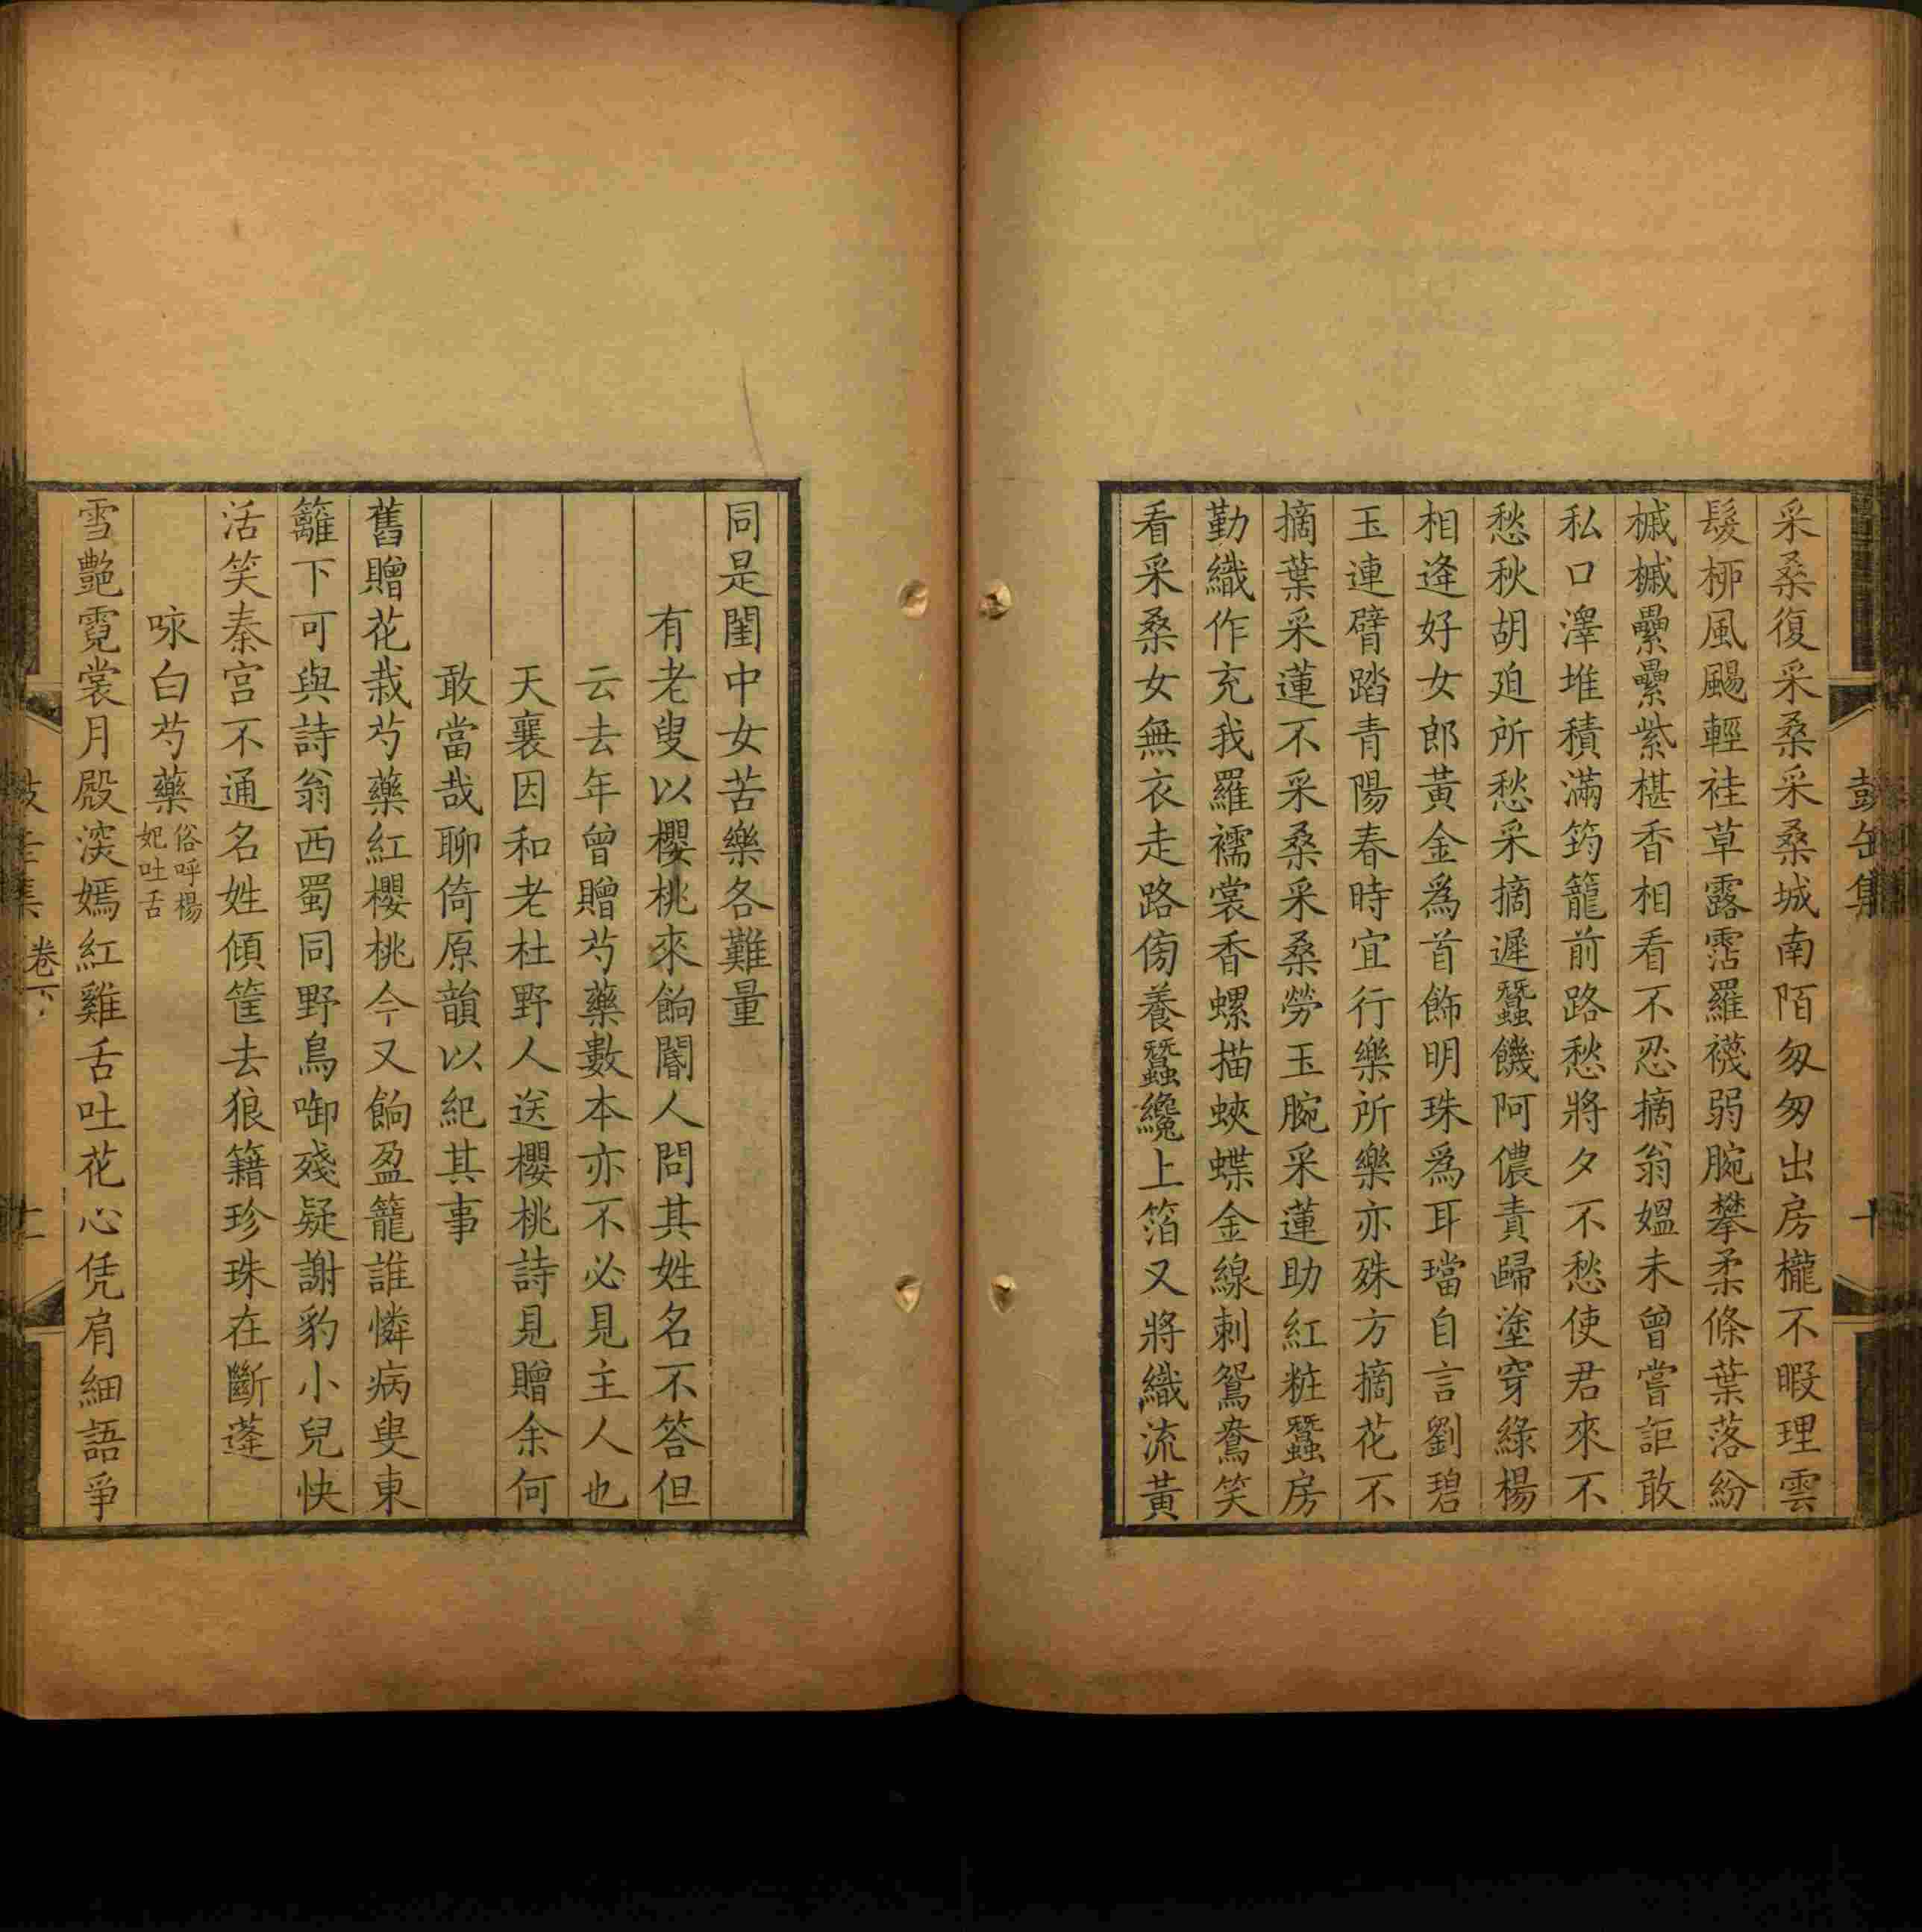 采桑復采桑采桑城南陌匆匆出房櫳不暇理雲
髮桺風颺輕袿草露霑羅襪弱腕攀柔條葉落紛
槭槭纍纍紫椹香相看不忍摘翁媼未曾嘗詎敢
私口澤堆積滿筠籠前路愁將夕不愁使君來不
愁秋胡迫所愁采摘遲蠶饑阿儂責歸塗穿綠楊
相逢好女郎黃金爲首飾明珠爲耳璫自言劉碧
玉連臂踏青陽春時宜行樂所樂亦殊方摘花不
摘葉采蓮不采桑采桑勞玉腕采蓮助紅粧蠶房
勤織作充我羅襦裳香螺描蛺蝶金線刺鴛鴦笑
看采桑女無衣走路傍養蠶纔上箔又將織流黃
同是閨中女苦樂各難量
有老叟以櫻桃來餉閽人問其姓名不答但
云去年曾贈芍藥數本亦不必見主人也
天襄因和老杜野人送櫻桃詩見贈余何
敢當哉聊倚原韻以紀其事
舊贈花栽芍藥紅櫻桃今又餉盈籠誰憐病叟東
籬下可與詩翁西蜀同野鳥啣殘疑謝豹小兒快
活笑秦宮不通名姓傾筐去狼籍珍珠在斷蓬
咏白芍藥俗呼楊
妃吐舌
雪艷霓裳月殿深嫣紅雞舌吐花心凭肩細語爭
卷六